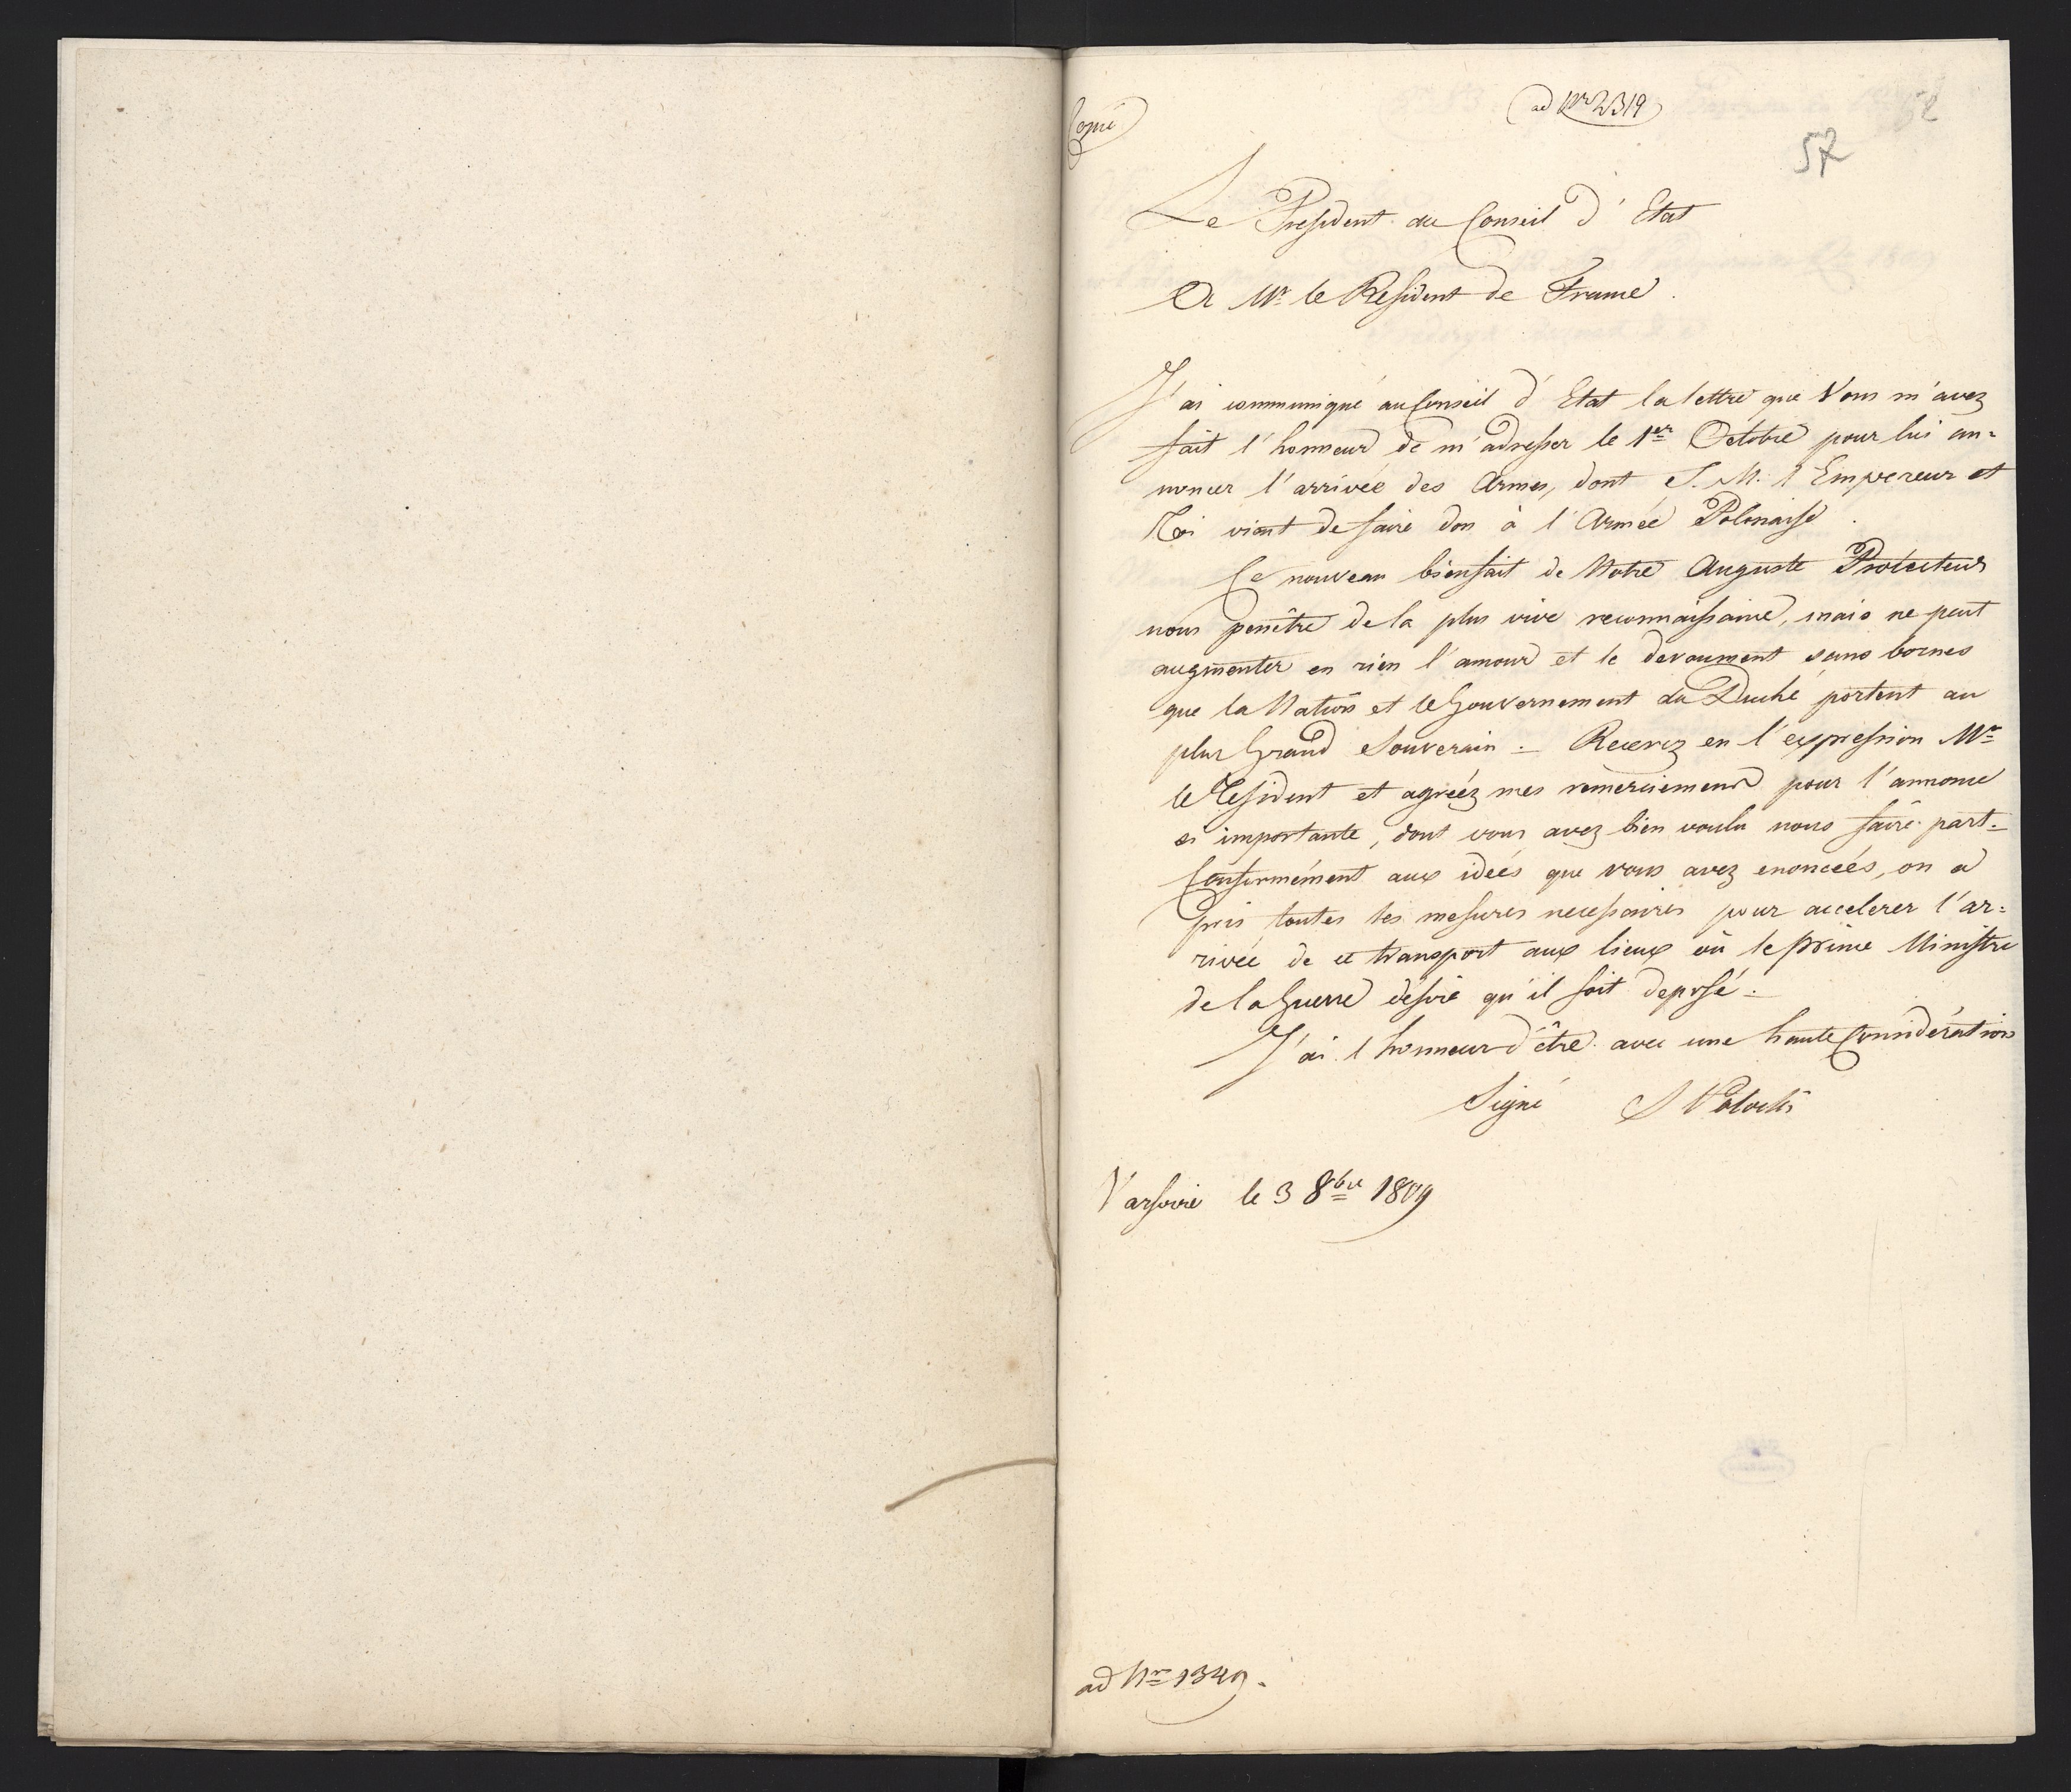 Copie
ad Nr 2319
52
57
Le President du Conseil d'Etat
A Mr le Resident de France.
J'ai communiqué au Conseil d'Etat la lettre que Vous m'avez
fait l'honneur de m'adresser le 1er Octobre pour lui an-
noncer l'arrivée des Armes, dont S. M. l'Empereur et
Roi vient de faire don à l'Armée Polonaise.
Ce nouveau bienfait de Notre Auguste Protecteur
nous penêtre de la plus vive reconnaissance, mais ne peut
augmenter en rien l'amour et le devoument sans bornes
que la Nation et le Gouvernement du Duché portent au
plus Grand Souverain. Recevez en l'expression Mr
le Resident et agréez mes remerciemens pour l'annonce
si importante, dont vous avez bien voulu nous faire part.
Conformément aux idées que vous avez enoncées, on a
pris toutes les mesures necessaires pour accelerer l'ar-
rivée de ce transport aux lieux où le Prince Ministre
de la Guerre désire qu'il soit deposé.
J'ai l'honneur d'être avec une haute Considération
Signé S Potocki
Varsovie le 3 8bre 1809
ad Nr 1349.